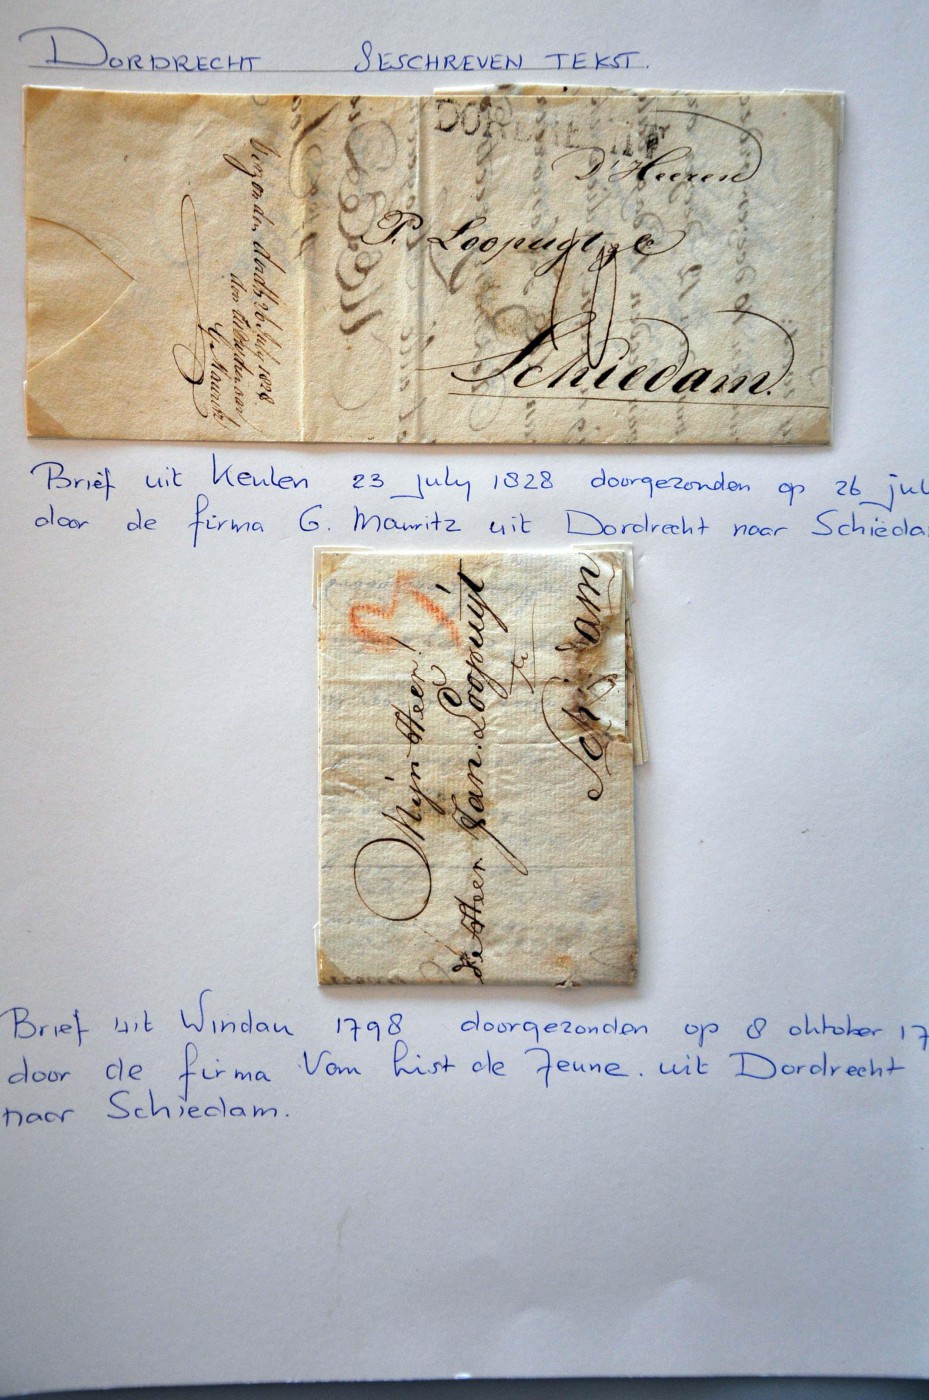 DORDRECHT SESCHREVEN TEKST.
DORDRECHT
D' Heeren
P. Loopuyt & C
Schiedam.
Verzonden dordt 26 July 1828
don
G. Mauritz
Brief uit Keulen 23 july 1828 doorgezonden op 26 jul
door de firma G. Mauritz uit Dordrecht naar Schieda
3
Mijn Heer!
de Heer Jan Loopuijt
te
Schiedam
Brief uit Windau 1798 doorgezonden op 8 oktober 17
door de firma Van List de Jeune. uit Dordrecht
naar Schiedam.